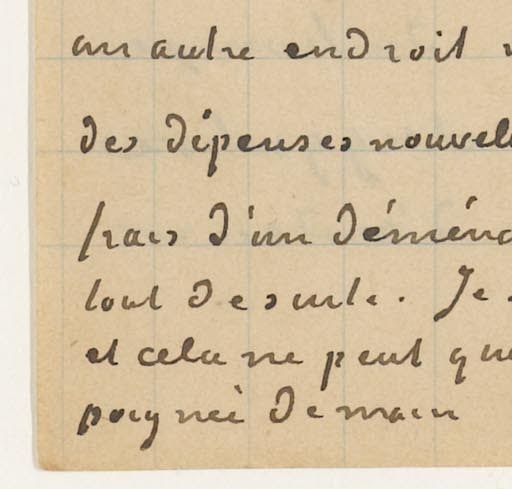 un autre endroit
des dépenses nouvel
frais d'un déména
tout de suite. Je
et cela ne peut que
poignée de main